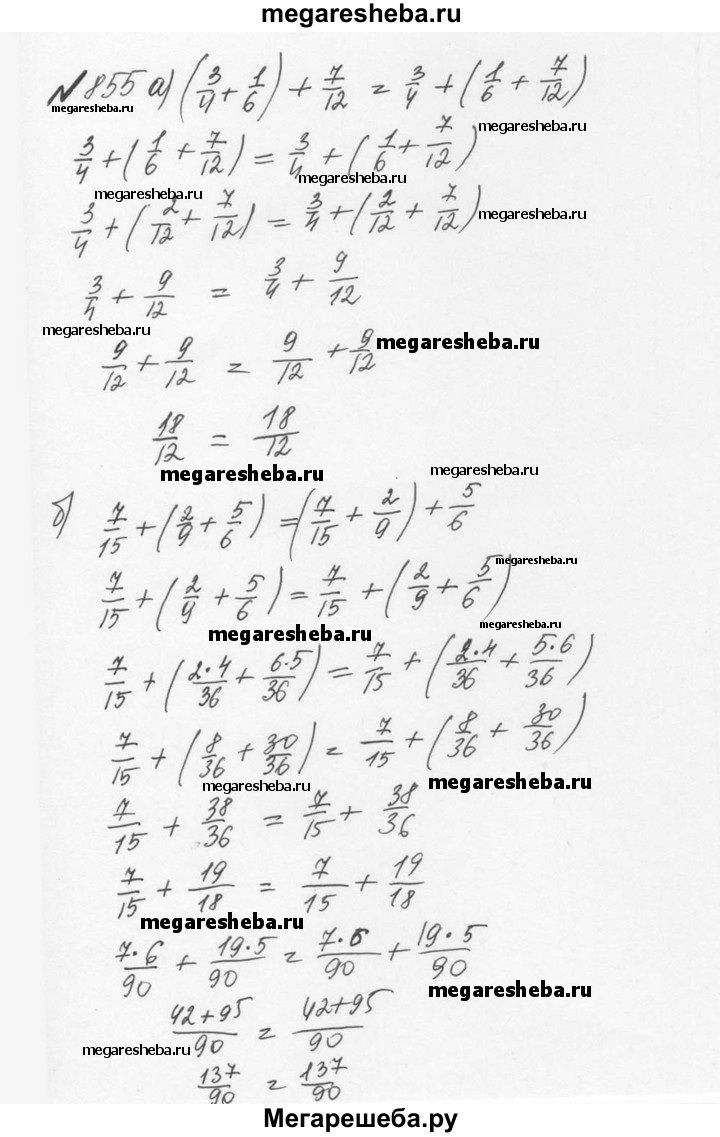 megaresheba.ru
№855 а) (3/4 + 1/6) + 7/12 = 3/4 + (1/6 + 7/12)
megaresheba.ru
3/4 + (1/6 + 7/12) = 3/4 + (1/6 + 7/12)
megaresheba.ru
megaresheba.ru
megaresheba.ru
3/4 + (2/12 + 7/12) = 3/4 + (2/12 + 7/12)
megaresheba.ru
3/4 + 9/12 = 3/4 + 9/12
megaresheba.ru
9/12 + 9/12 = 9/12 + 9/12
megaresheba.ru
18/12 = 18/12
megaresheba.ru
megaresheba.ru
б) 7/15 + (2/9 + 5/6) = (7/15 + 2/9) + 5/6
megaresheba.ru
7/15 + (2/9 + 5/6) = 7/15 + (2/9 + 5/6)
megaresheba.ru
megaresheba.ru
7/15 + (2·4/36 + 6·5/36) = 7/15 + (2·4/36 + 5·6/36)
7/15 + (8/36 + 30/36) = 7/15 + (8/36 + 30/36)
megaresheba.ru
megaresheba.ru
7/15 + 38/36 = 7/15 + 38/36
7/15 + 19/18 = 7/15 + 19/18
megaresheba.ru
7·6/90 + 19·5/90 = 7·6/90 + 19·5/90
megaresheba.ru
42+95/90 = 42+95/90
megaresheba.ru
137/90 = 137/90
Мегарешеба.ру